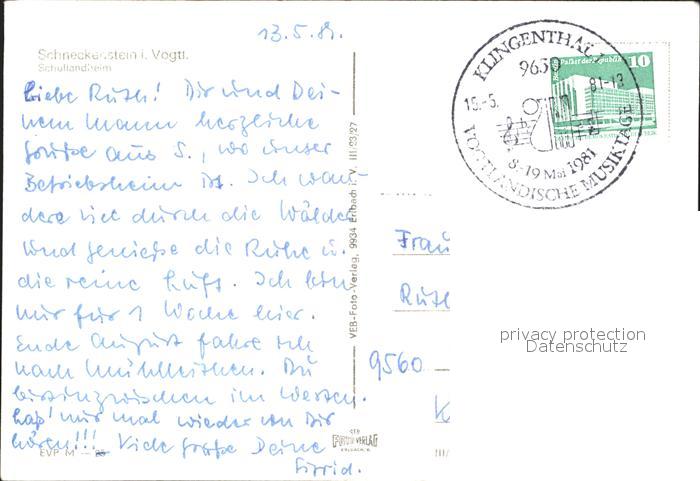 13.5.81.
Schneckenstein i. Vogtl.
Schullandheim
Liebe Ruth! Dir und Dei-
nem Mann herzliche
Grüße aus S., wo unser
Betriebsheim ist. Ich wan-
dere viel durch die Wälder
und genieße die Ruhe u.
die reine Luft. Ich bin
nur für 1 Woche hier.
Ende August fahre ich
nach Mühlleithen. Du
bist inzwischen im Westen.
Laß' mir mal wieder von Dir
hören!!! Viele Grüße Deine
Sigrid.
EVP M
VEB-Foto-Verlag, 9934 Erlbach i. V. III/23/27
FOTO-VERLAG
ERLBACH
KLINGENTHAL 1
9650
15.-5. 81-12
8.-19 Mai 1981
VOGTLÄNDISCHE MUSIKTAGE
Palast der Republik 10
Frau
Ruth
9560
K
privacy protection
Datenschutz